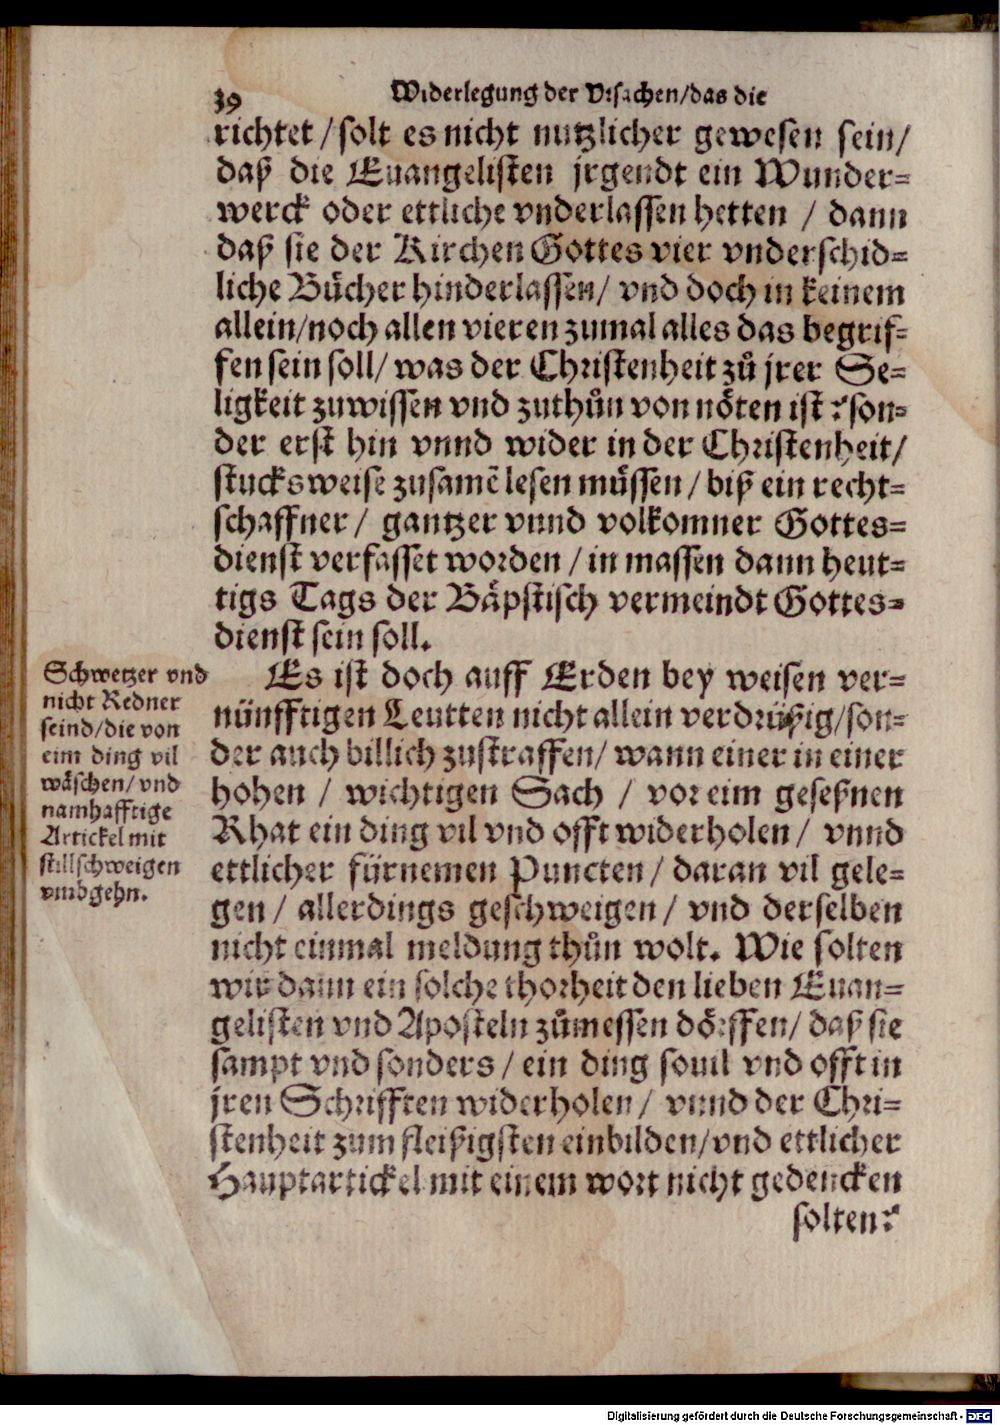 39
Widerlegung der Vrsachen/das die
richtet/solt es nicht nutzlicher gewesen sein/
daß die Euangelisten jrgendt ein Wunder=
werck oder ettliche vnderlassen hetten / dann
daß sie der Kirchen Gottes vier vnderschid=
liche Bücher hinderlassen/ vnd doch in keinem
allein/noch allen vieren zumal alles das begrif=
fen sein soll/ was der Christenheit zů jrer Se=
ligkeit zuwissen vnd zuthůn von nöten ist ? son=
der erst hin vnnd wider in der Christenheit/
stucksweise zusamē lesen müssen / biß ein recht=
schaffner/ gantzer vnnd volkomner Gottes=
dienst verfasset worden / in massen dann heut=
tigs Tags der Bäpstisch vermeindt Gottes=
dienst sein soll.
Schwetzer vnd
nicht Redner
seind/die von
eim ding vil
wäschen/ vnd
namhafftige
Artickel mit
stillschweigen
vmbgehn.
Es ist doch auff Erden bey weisen ver=
nünfftigen Leutten nicht allein verdrüßig/son=
der auch billich zustraffen/ wann einer in einer
hohen / wichtigen Sach / vor eim geseßnen
Rhat ein ding vil vnd offt widerholen/ vnnd
ettlicher fürnemen Puncten/ daran vil gele=
gen/ allerdings geschweigen/ vnd derselben
nicht einmal meldung thůn wolt. Wie solten
wir dann ein solche thorheit den lieben Euan=
gelisten vnd Aposteln zůmessen dörffen/ daß sie
sampt vnd sonders/ ein ding souil vnd offt in
jren Schrifften widerholen/ vnnd der Chri=
stenheit zum fleißigsten einbilden/vnd ettlicher
Hauptartickel mit einem wort nicht gedencken
solten?
Digitalisierung gefördert durch die Deutsche Forschungsgemeinschaft - DFG